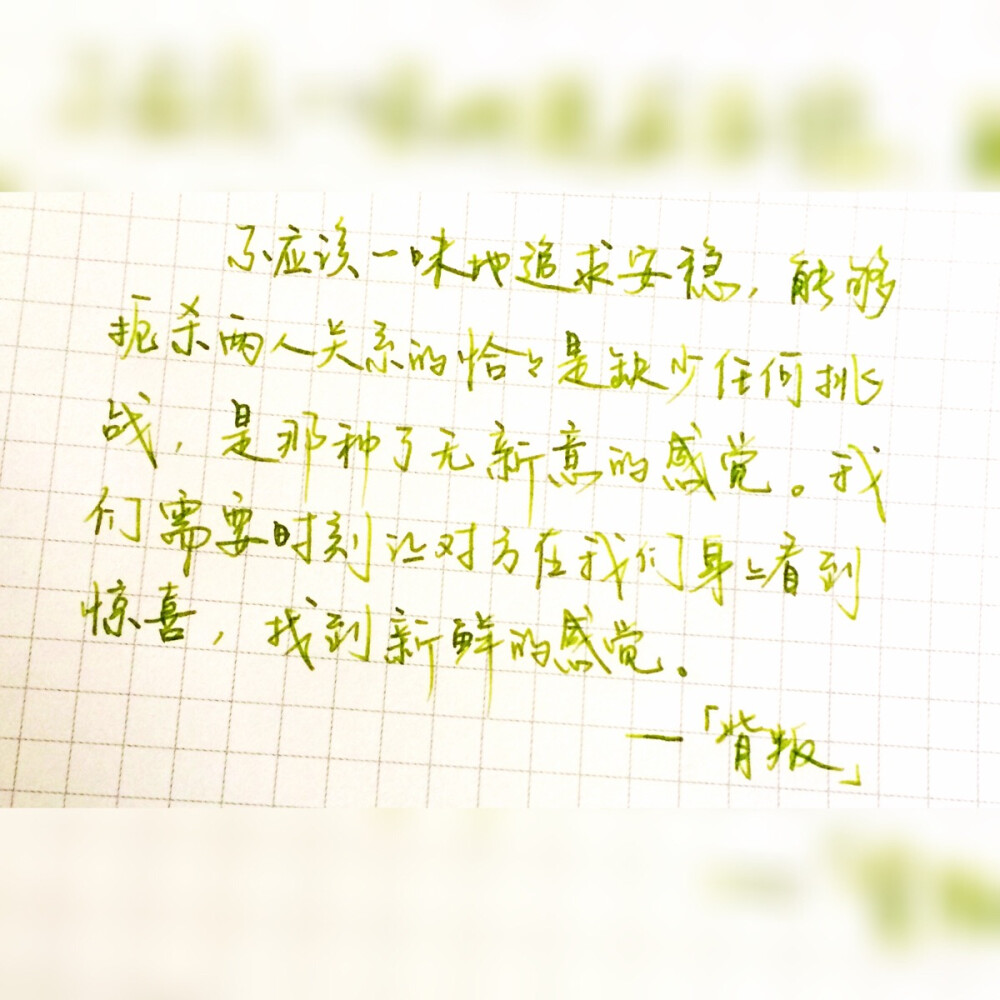 不应该一味地追求安稳,能够
扼杀两人关系的恰々是缺少任何挑
战,是那种了无新意的感觉。我
们需要时刻让对方在我们身上看到
惊喜,找到新鲜的感觉。
—「背叛」